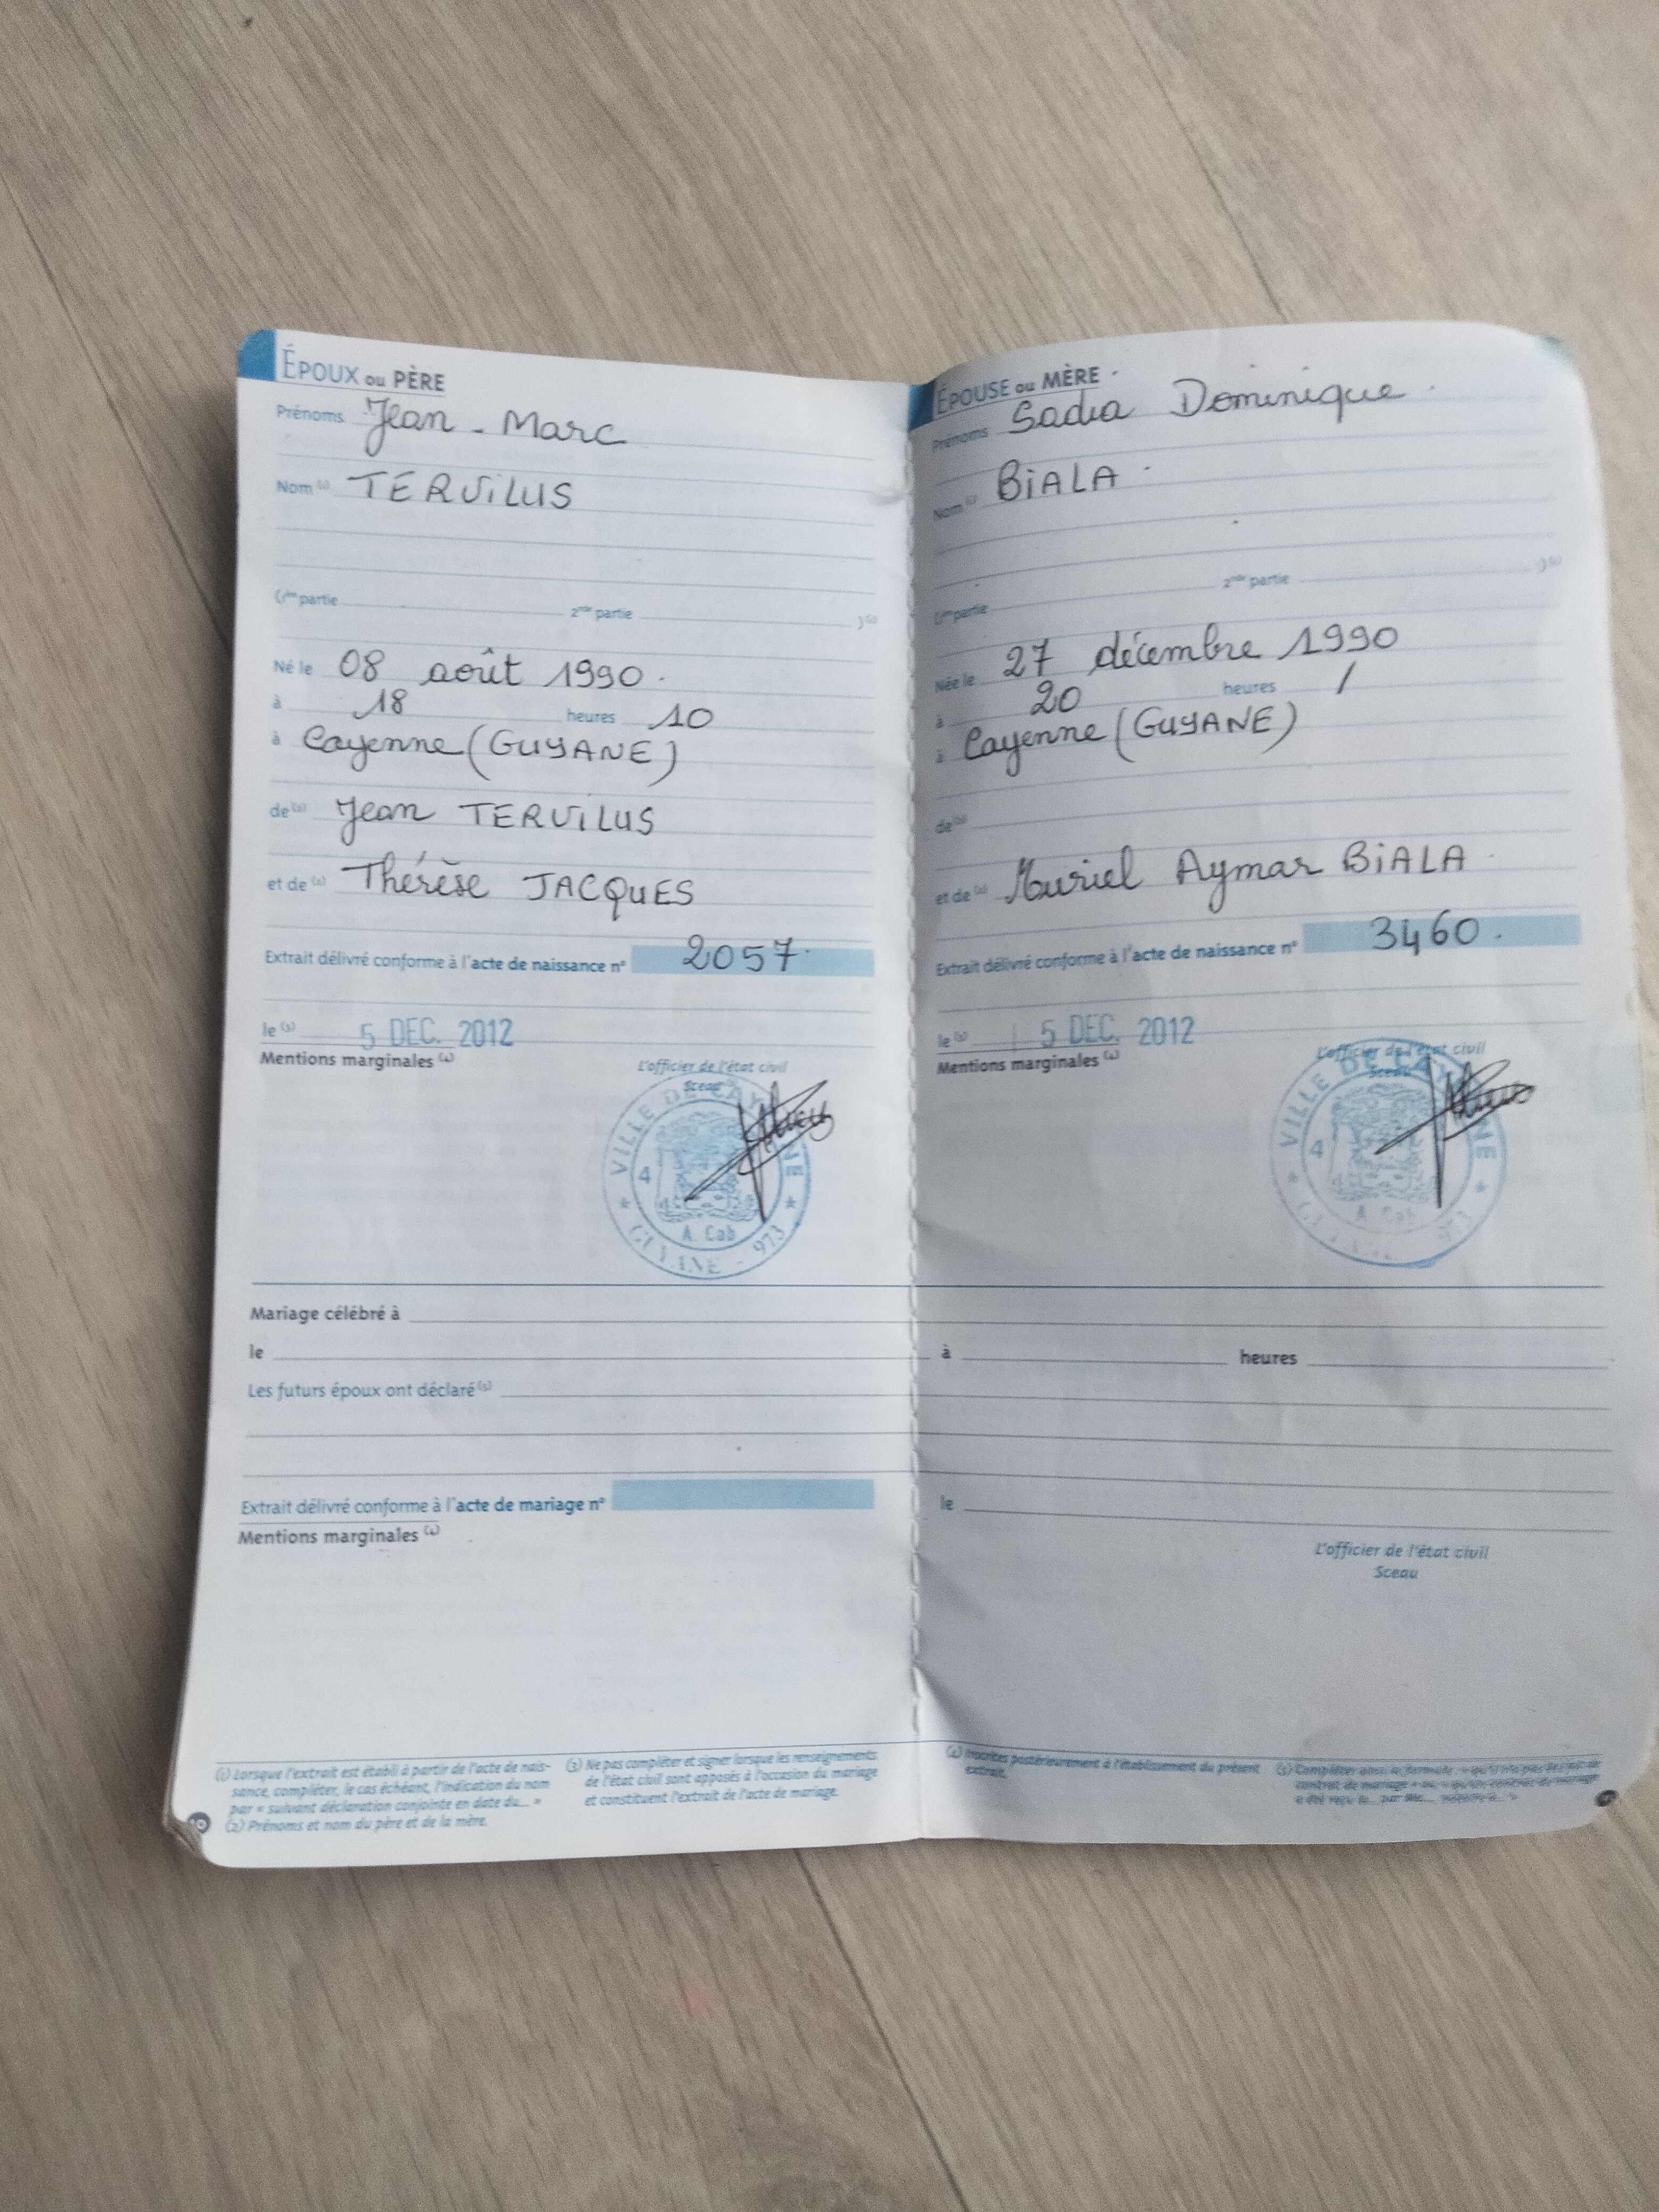 ÉPOUX ou PÈRE
Prénoms Jean - Marc
Nom (1) TERVILUS
(1ère partie 2nde partie )(1)
Né le 08 août 1990.
à 18 heures 10
à Cayenne (GUYANE)
de (2) Jean TERVILUS
et de (2) Thérèse JACQUES
Extrait délivré conforme à l'acte de naissance n° 2057.
le (3) 5 DEC. 2012
Mentions marginales (4)
L'officier de l'état civil
Sceau
VILLE DE CAYENNE
4
A. Cab
GUYANE - 973
ÉPOUSE ou MÈRE
Prénoms Sadia Dominique
Nom (1) BIALA
(1ère partie 2nde partie )(1)
Née le 27 décembre 1990
à 20 heures /
à Cayenne (GUYANE)
de (2)
et de (2) Muriel Aymar BIALA
Extrait délivré conforme à l'acte de naissance n° 3460.
le (3) 5 DEC. 2012
Mentions marginales (4)
L'officier de l'état civil
Sceau
VILLE DE CAYENNE
4
A. Cab
973
Mariage célébré à
le à heures
Les futurs époux ont déclaré (5)
Extrait délivré conforme à l'acte de mariage n° le
Mentions marginales (4)
L'officier de l'état civil
Sceau
(1) Lorsque l'extrait est établi à partir de l'acte de nais-
sance, compléter, le cas échéant, l'indication du nom
par « suivant déclaration conjointe en date du... »
(2) Prénoms et nom du père et de la mère.
(3) Ne pas compléter et signer lorsque les renseignements
de l'état civil sont apposés à l'occasion du mariage
et constituent l'extrait de l'acte de mariage.
(4) Inscrites postérieurement à l'établissement du présent
extrait.
(5) Compléter ainsi la formule : « qu'il n'a pas été fait de
contrat de mariage » ou « qu'un contrat de mariage
a été reçu le... par Me...